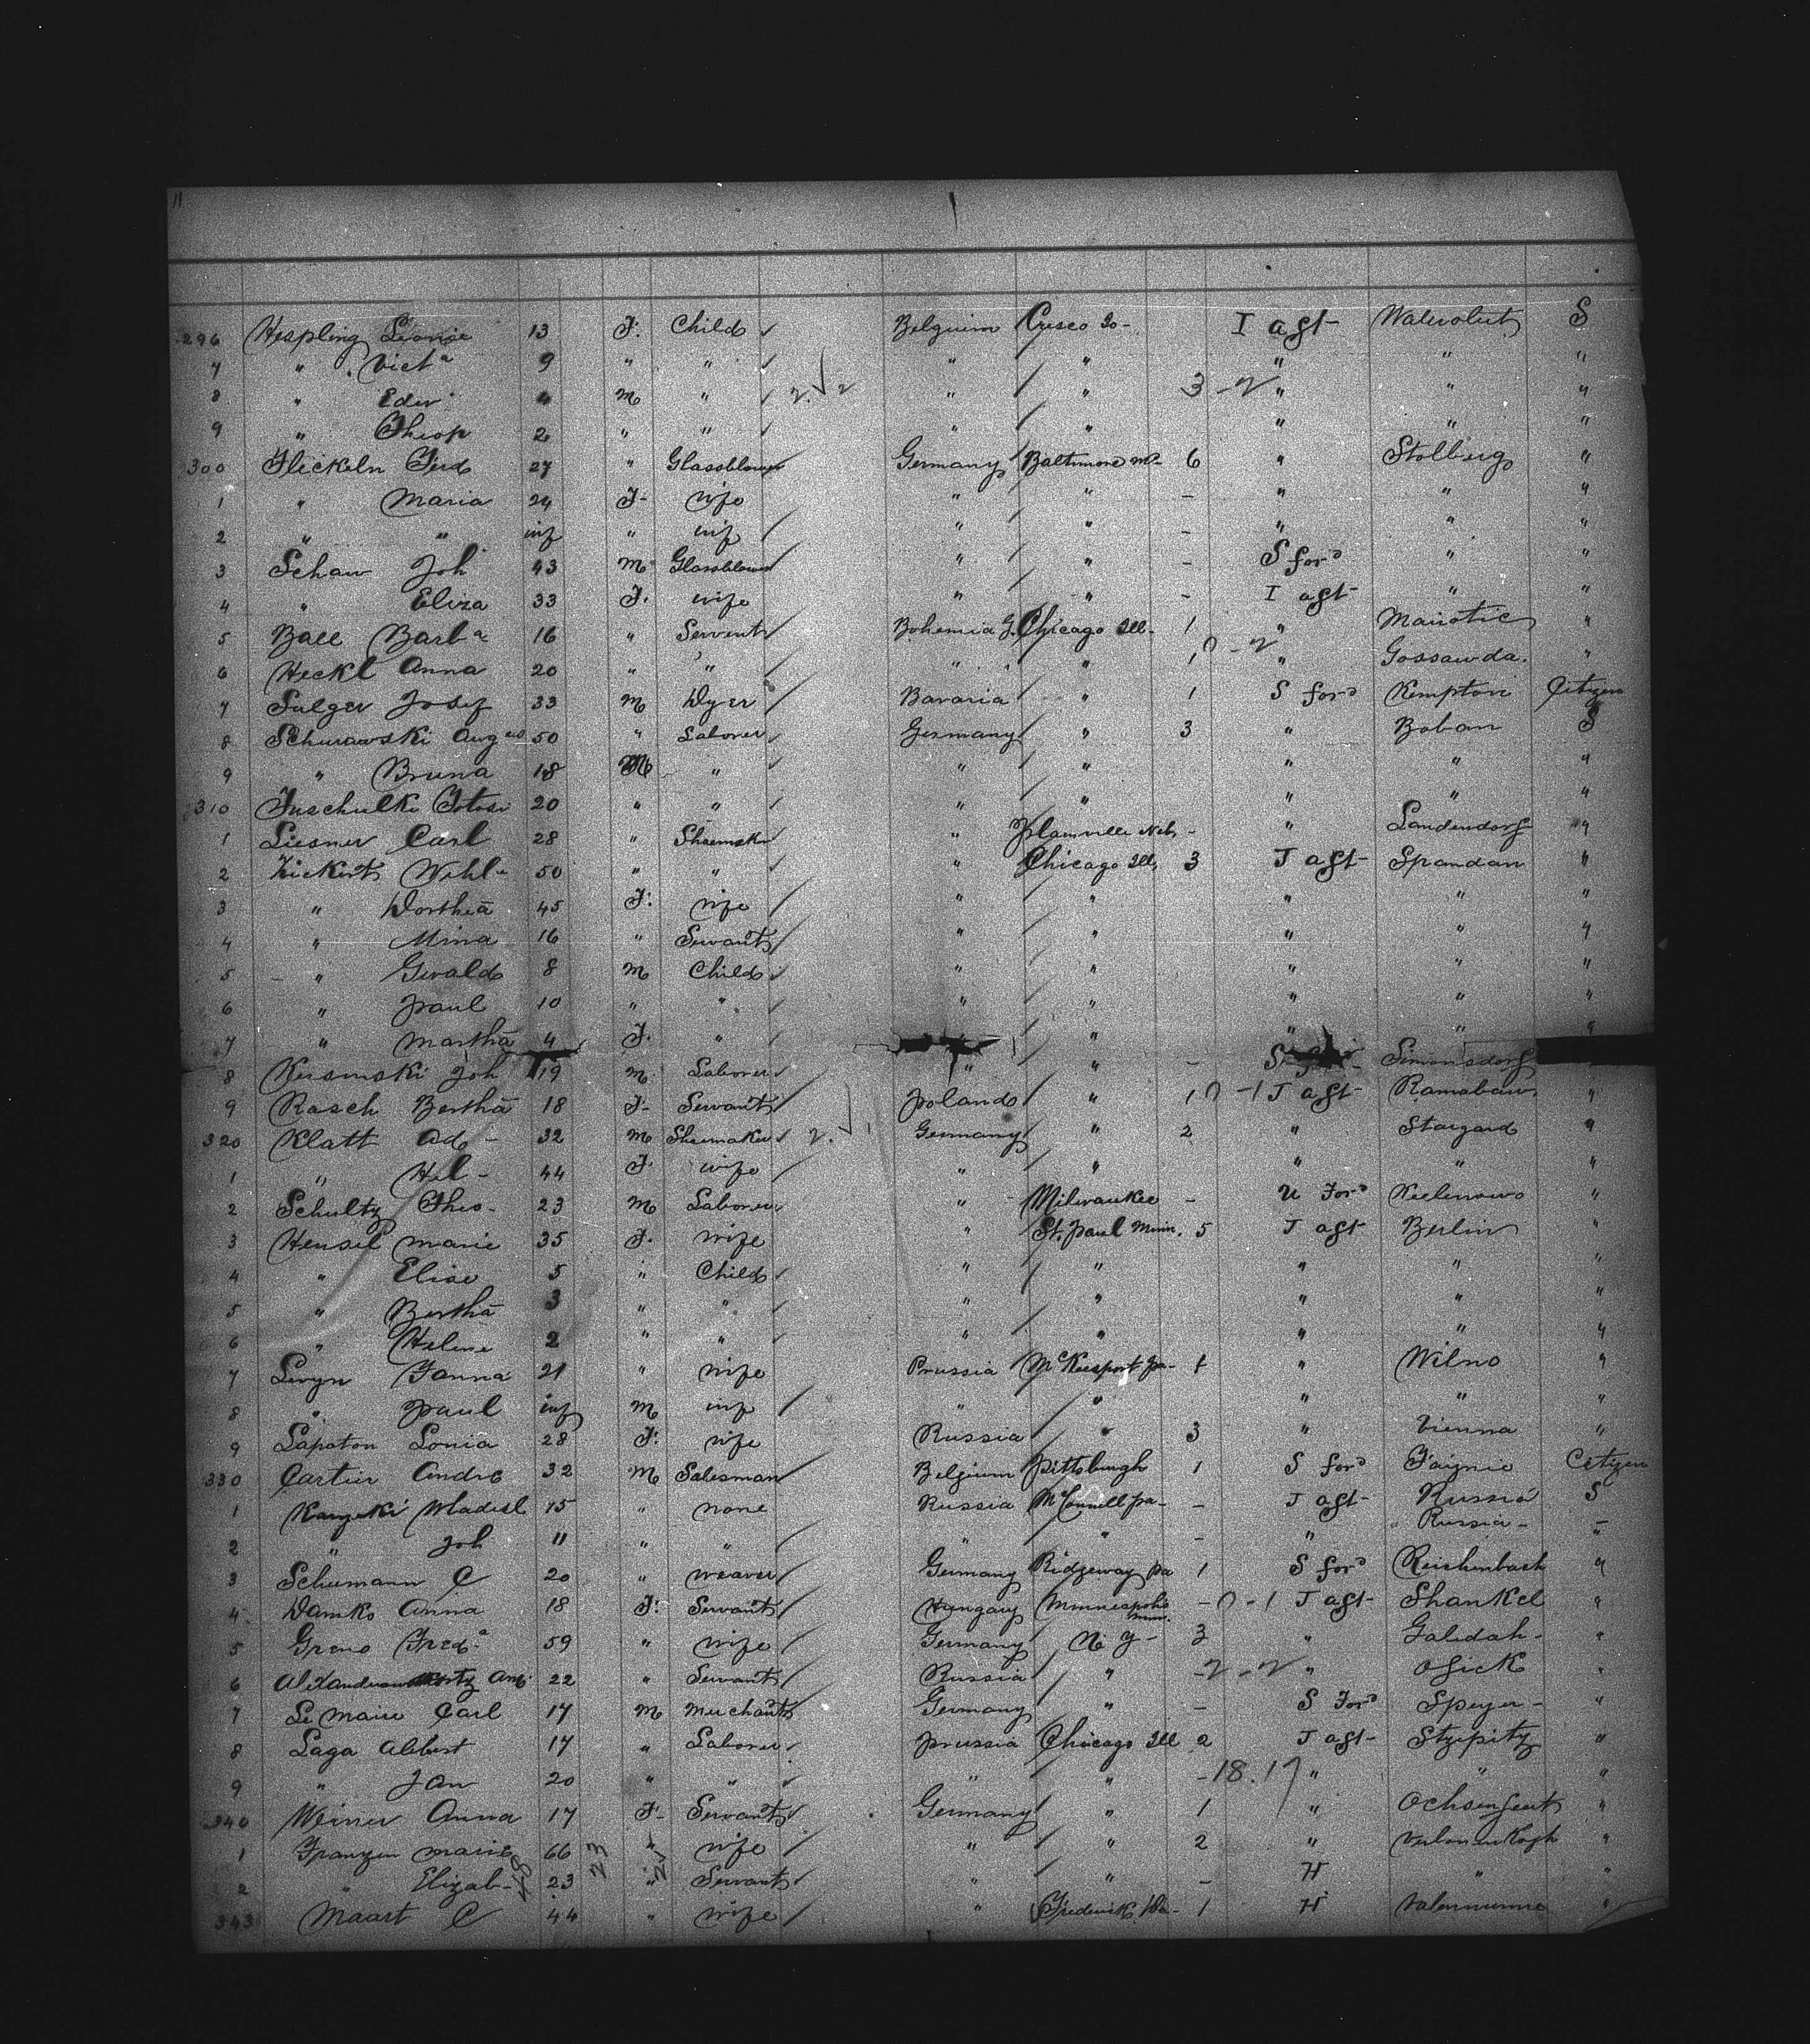 11
296 Hespling Leonie 13 F. Child Belguim Cresco Io- I aft- S
7 " Vict a 9 " " " " " " "
8 " Edw 4 M " 2 √ 2 " " 3 - 2 " " "
9 " Theop 2 " " " " " " "
300 Flickeln Ferd 27 " Glassblower Germany Baltimore Md- 6 " Stolberg "
1 " Maria 24 F- wife " " - " " "
2 " " inf " inf " " - " " "
3 Schaw Joh 43 M Glassblower " " - S for d " "
4 " Eliza 33 F. wife " " - I aft- " "
5 Barb a 16 " Servent Bohemia G. Chicago Ill- 1 " "
6 Heckl Anna 20 " " " " 1 0-2 " Gossawda. "
7 Sulger Josef 33 M Dyer Bavaria " 1 S for d Kempton Citizen
8 Schurawski Aug 50 " Laborer Germany " 3 " Boban S
9 " Bruna 18 M " " " " " "
310 20 " " " " " " "
1 Liesner Carl 28 " Shoemak " Plainville Neb - " Landendorf "
2 Zickert Wihl- 50 " " " Chicago Ill, 3 I aft- Spandau "
3 " Dorthea 45 F. wife " " " " "
4 " Mina 16 " Servant " " " " "
5 " Gerald 8 M Child " " " " "
6 " Paul 10 " " " " " " "
7 " Martha 4 F. " " " " " "
8 Joh 19 M. Laborer " " - Simonsdorf
9 Rasch Bertha 18 F- Servant Poland " 1 0-1 I aft- Ramabaw "
320 Klatt Ad - 32 M Shoemaker 2. √ 1 Germany " 2 " Stargard "
1 " Hel - 44 F. wife " " " " "
2 Schultz Theo- 23 M Laborer " Milwaukee - U For d "
3 Hensel Marie 35 F. wife " St. Paul Minn. 5 I aft Berlin "
4 " Elise 5 " Child " " " " "
5 " Bertha 3 " " " " " " "
6 " Helene 2 " " " " " " "
7 Levyn 21 " wife Prussia McKeesport Pa- 1 " Wilno "
8 " Paul inf M inf " " " " "
9 Lapaton Sonia 28 F. wife Russia " 3 " Vienna "
330 Cartier Andre 32 M Salesman Belgium Pittsburgh 1 S for d Citizen
1 Wladisl 15 " none Russia McConnell Pa- - I aft- Russia S
2 " Joh 11 " " " " - " Russia - "
3 Schumann C 20 " weaver Germany Ridgeway Pa 1 S for d Reichenbach "
4 Damko Anna 18 F. Servant Hungary Minneapolis Minn. - 0-1 I aft- Shankel "
5 Greno Fred a 59 " wife Germany N. Y- 3 " Galidah- "
6 22 " Servant Russia " - 2-2 " Osick "
7 Le Maire Carl 17 M Merchant Germany " - S For d Speyer- "
8 Laga Albert 17 " Laborer Prussia Chicago Ill 2 I aft- "
9 " Jan 20 " " " " - 18.17 " " "
340 Weiner Anna 17 F- Servant Germany " 1 " Ochsenfeurt "
1 Franzen Marie 66 23 " wife " " 2 " "
2 " Elizab- 23 " Servant " " - H " "
343 Maart C 44 " wife " Frederick Da- 1 H "